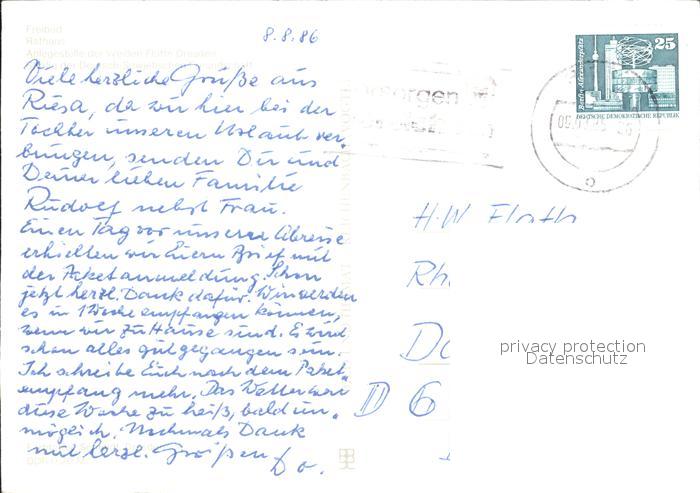 8.8.86
Freibad
Rathaus
Anlegestelle der Weißen Flotte Dresden
Viele herzliche Grüße aus
Riesa, da wir hier bei der
Tochter unseren Urlaub ver-
bringen, senden Dir und
Deiner lieben Familie
Rudolf nebst Frau.
Einen Tag vor unserer Abreise
erhielten wir Euern Brief mit
der Paketanmeldung. Schon
jetzt herzl. Dank dafür. Wir werden
es in 1 Woche empfangen können,
wenn wir zu Hause sind. Es wird
schon alles gut gegangen sein.
Ich schreibe Euch nach dem Paket-
empfang mehr. Das Wetter war
diese Woche zu heiß, bald un-
möglich. Nochmals Dank
mit herzl. Grüßen
25
Berlin, Alexanderplatz
DEUTSCHE DEMOKRATISCHE REPUBLIK
H.W.
Rh
Do
D 6
privacy protection
Datenschutz